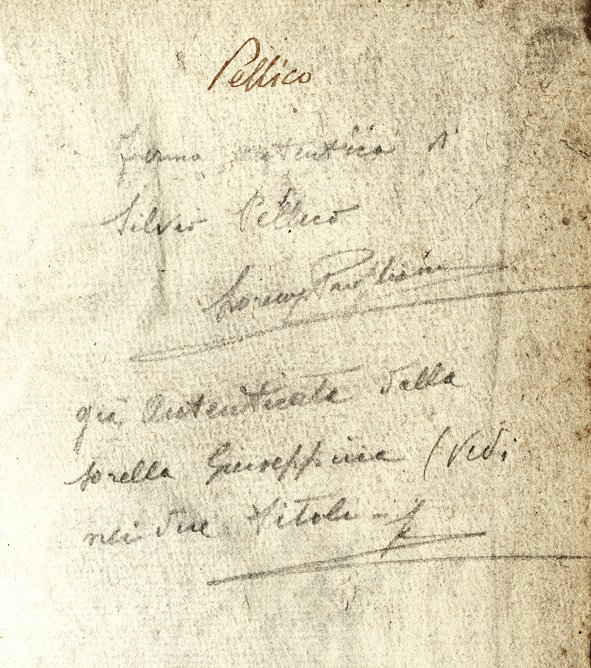 Pellico
Firma autentica di
Silvio Pellico
già autenticata dalla
sorella Giuseppina (Vedi
nei due titoli -